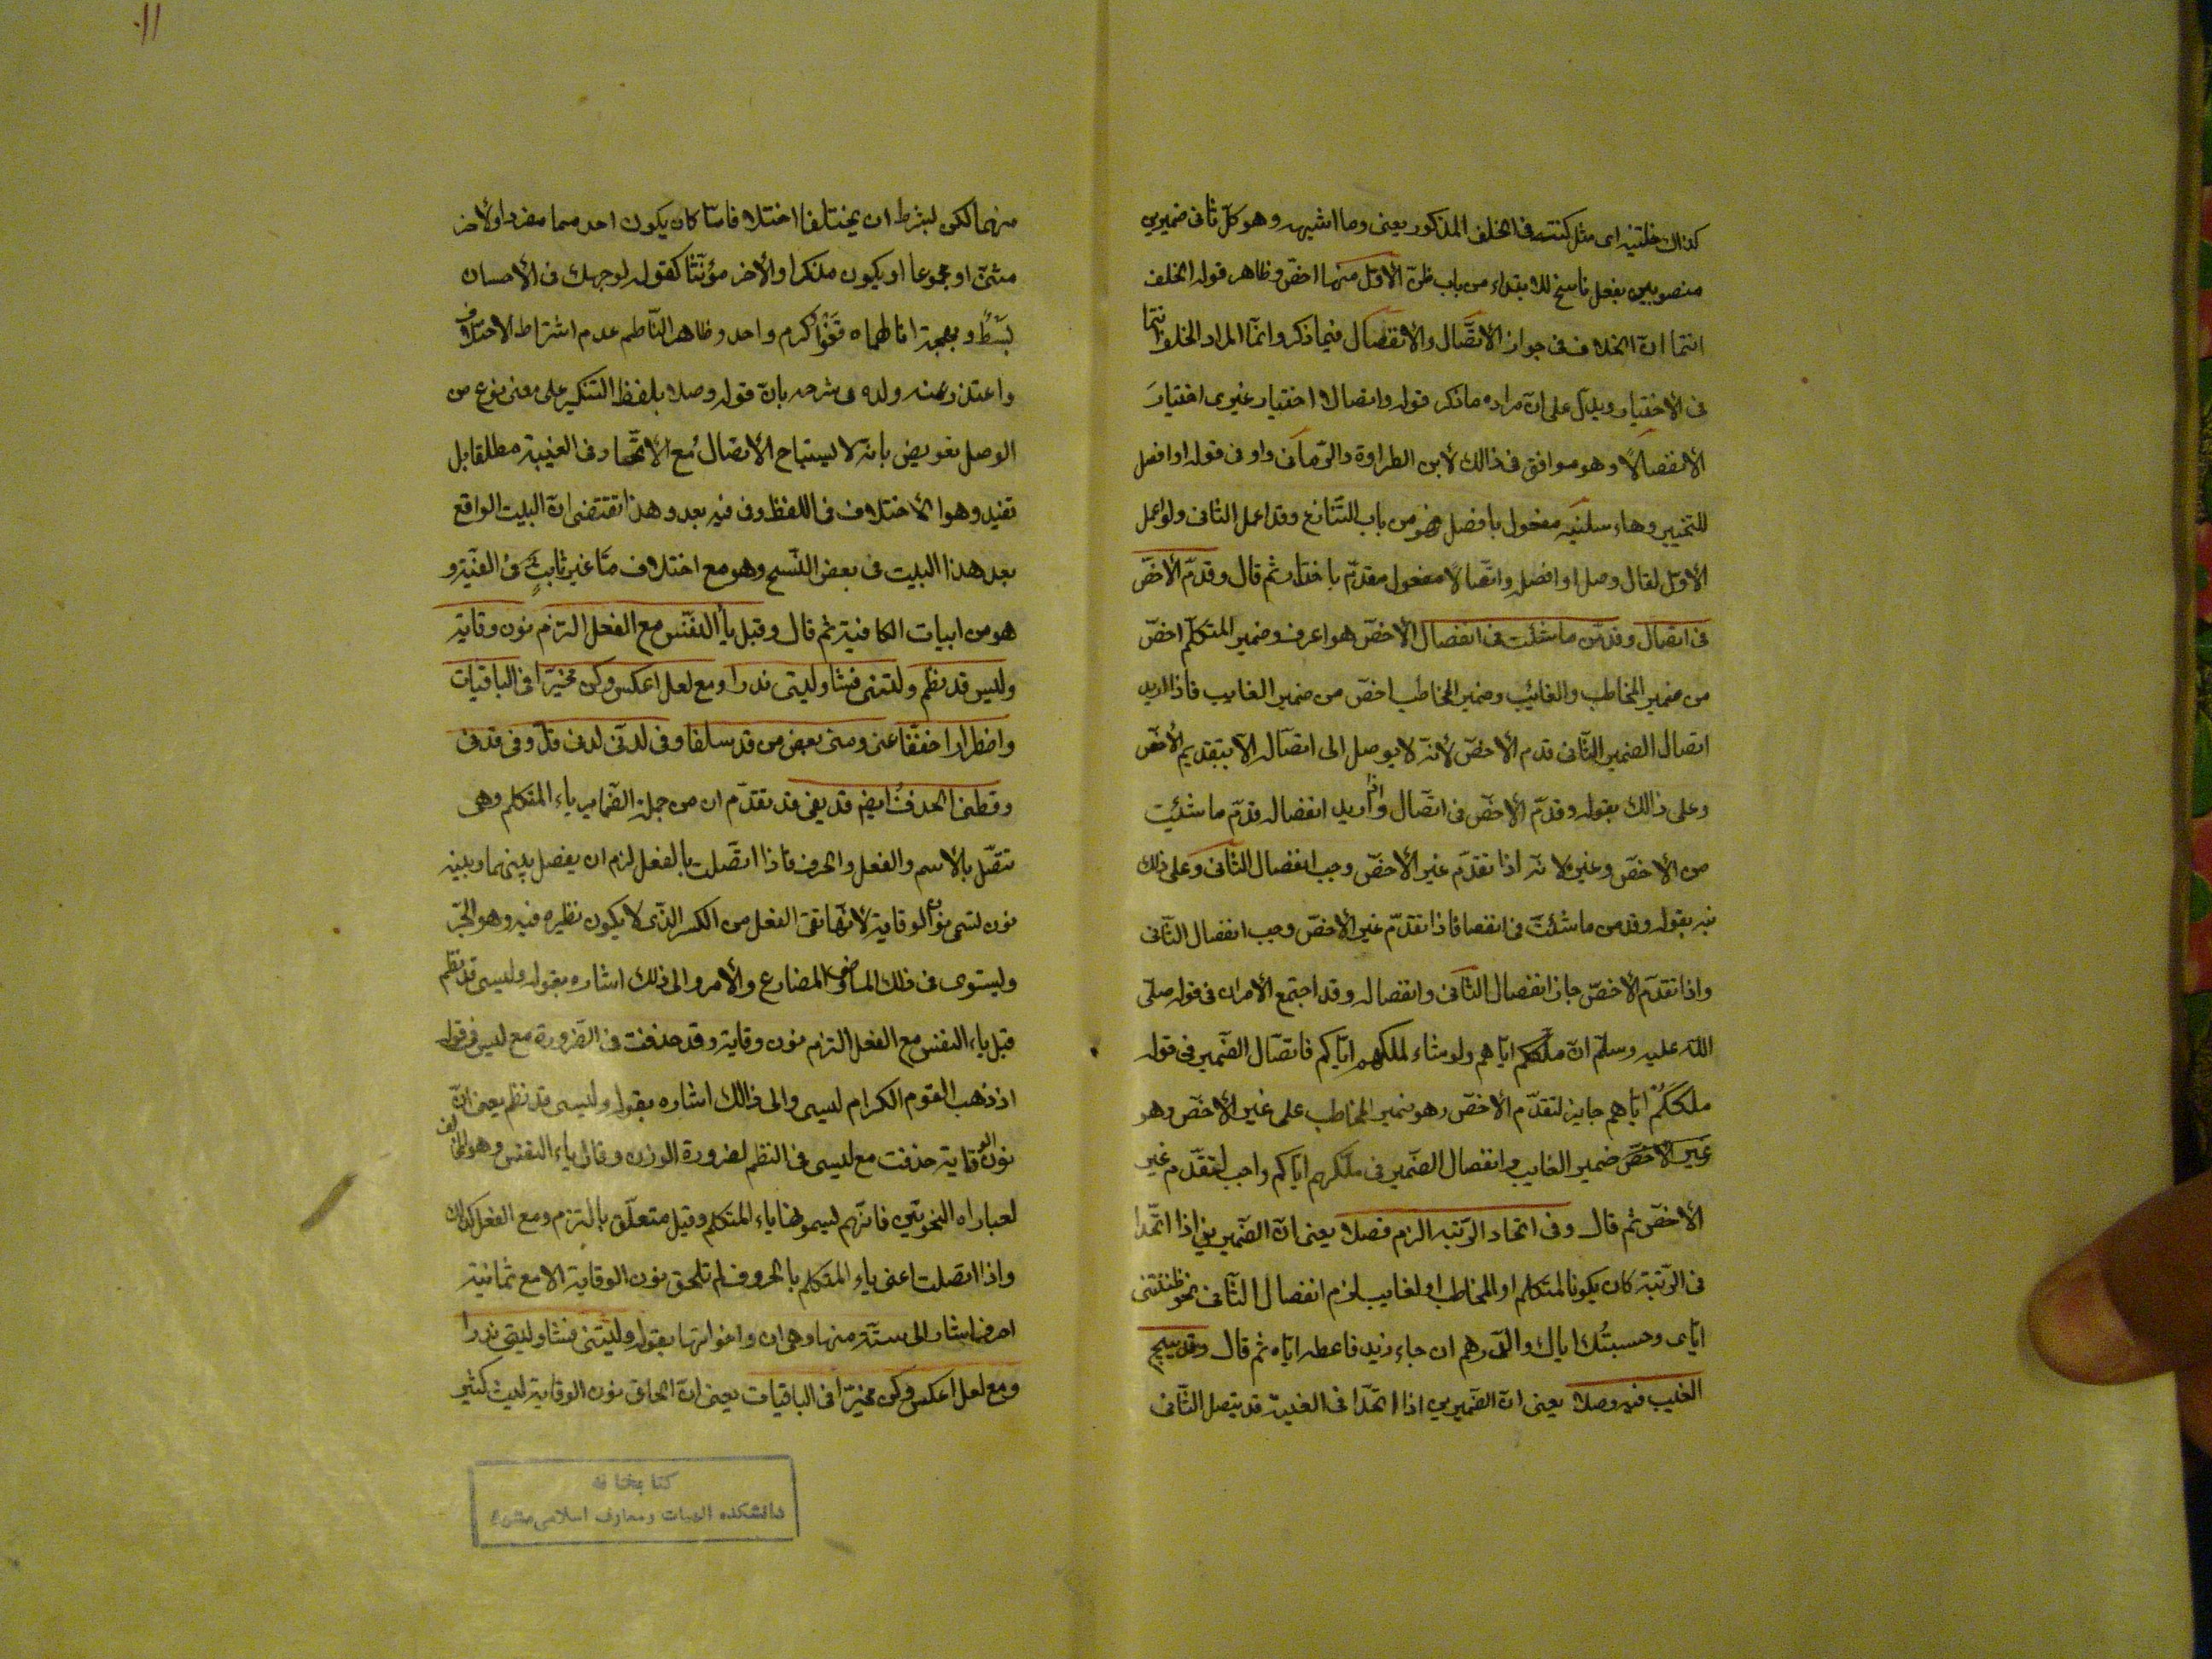 كذاك خلتنيه اى مثل كنته فى الخلف المذكور يعنى وما اشبهه وهو كلّ ثانى ضميرين
منصوبين بفعل ناسخ للابتداء من باب ظنّ الأوّل منهما اخصّ وظاهر قوله الخلف انتما
انتما انّ الخلاف فى جواز الاتّصال والانفصال فيما ذكر وانّما المراد الخلاف
فى الأختيار ويدلّ على انّ مراده ماذكر قوله واتصالا اختيار غيرى اختيارَ
الأنفصالاً وهو موافق فى ذالك لأبن الطراوة والرّمانى واو فى قوله اوافصل
للتخيير وهاء سلنيه مفعول بافصل فهو من باب التّنازع وقد اعمل الثانى ولو اعمل
الأوّل لقال وصل او افصله واتّصالاً مفعول مقدّم باختار ثم قال وقدّم الأخصّ
فى اتصال وقدّمن ماشئت فى انفصال الأخصّ هو اعرف وضمير المتكلّم اخصّ
من ضمير المخاطب والغائب وضمير المخاطب اخصّ من ضمير الغايب فاذا اريد
اتصال الضمير الثّانى قدم الأخصّ لأنّه لايوصل الى اتصاله الّا بتقديم الأخصّ
وعلى ذالك بقوله وقدّم الأخصّ فى اتّصال واذا اريد انفصاله قدّم ماشئت
من الأخصّ وغيره لانّه اذا تقدّم غير الأخصّ وجب انفصال الثّانى وعلى ذلك
نبه بقوله وقدمن ماشئت فى انفصا فاذا تقدّم غير الأخصّ وجب انفصال الثّانى
واذا تقدّم الأخصّ جاز انفصال الثّانى وانفصاله وقد اجتمع الأمران فى قوله صلّى
الله عليه وسلّم انّ ملككم ايّاهم ولو شاء لملكهم ايّاكم فاتصّال الضّمير فى قوله
ملككُم ايّاهم جايز لتقدّم الأخصّ وهو ضمير المخاطب على غير الأخصّ وهو
غير الأخصّ ضمير الغايب وانفصال الضّمير فى ملّكهم ايّاكم واجب لتقدّم غير
الأخصّ ثم قال وفى اتحاد الرّتبه الزم فصلا يعنى انّ الضّميرين اذا اتّحدا
فى الرّتبة كان يكونا لمتكلم او المخاطب او لغايب لزم انفصال الثّانى نحو ظننتنى
ايّاى وحسبتُك اياك والدّرهم ان جاء زيد فاعطه ايّاه ثم قال وقد يبيح
الغيب فيه وصلا يعنى انّ الضّميرين اذا اتّحدا فى الغيبة قد يتصل الثّانى
منهما لكن بشرط ان يختلفا اختلافا ما كان يكون احدهما مفردا والأخر
مثنّى او مجموعا او يكون مذكرا والأخر مؤنّثا كقوله لوجهك فى الأحسان
بَسْطٌ وبهجة انالهماه قَفْوُ اكرم والد وظاهر النّاظم عدم اشتراط الاختلاف
واعتذر عنه ولده فى شرحه بانّ قوله وصلا بلفظ التنكير على معنى نوع من
الوصل تعريض بانّه لايستباح الأتصال مع الاتّحاد فى الغيبة مطلقا بل
بقيد وهو الأختلاف فى اللفظ وفى فيه بعد وهذا يقتضى انّ البيت الواقع
بعد هذا البيت فى بعض النّسخ وهو مع اختلاف ما غير ثابتٍ فى الفيّة و
هو من ابيات الكافية ثم قال وقبل يا النّفس مع الفعل التزم نون وقاية
وليس قد نظم وليتنى فشا وليتى ندرا ومع لعل اعكس وكن مخيّرا فى الباقيات
واضطرارا خفّفا عنى ومنى بعض من قد سلفا وفى لدنّى لدنى قلّ وفى قدنى
وقطنى الحذف ايضا قد يفى قد تقدّم ان من جملة الضّماير ياء المتكلم وهى
تتّصل بالأسم والفعل والحرف فاذا اتّصلت بالفعل لزم ان يفصل بينهما وبينه
نون تسمى نون الوقاية لأنّها تقى الفعل من الكسر الّذى لايكون نظيره فيه وهو الجّر
ويستوى فى ذلك الماضى والمضارع والأمر والى ذلك اشاره بقوله وليسى قد نظم
قبل ياء النفس مع الفعل التزم نون وقاية وقد حذفت فى الضّرورة مع ليس فى قوله
اذ ذهب القوم الكرام ليسى والى ذالك اشاره بقوله وليسى قد نظم يعنى انّ
نون الوقاية حذفت مع ليسى فى النظم لضرورة الوزن وقال ياء النفس وهو مخالف
لعباراه النحويّين فانّهم يسمونها ياء المتكلم وقبل متعلّق بالتزم ومع الفعل كذلك
واذا اتصلت اعنى ياء المتكلم بالحروف لم تلحق نون الوقاية الا مع ثمانية
احرف اشار الى ستّة منها وهى ان واخواتها بقوله وليتنى فشا وليتى ندرا
ومع لعل اعكس وكن مخيّرا فى الباقيات يعنى انّ الحاق نون الوقاية لليت كثير
كتابخانه
دانشكده الهيات و معارف اسلامى مشهد